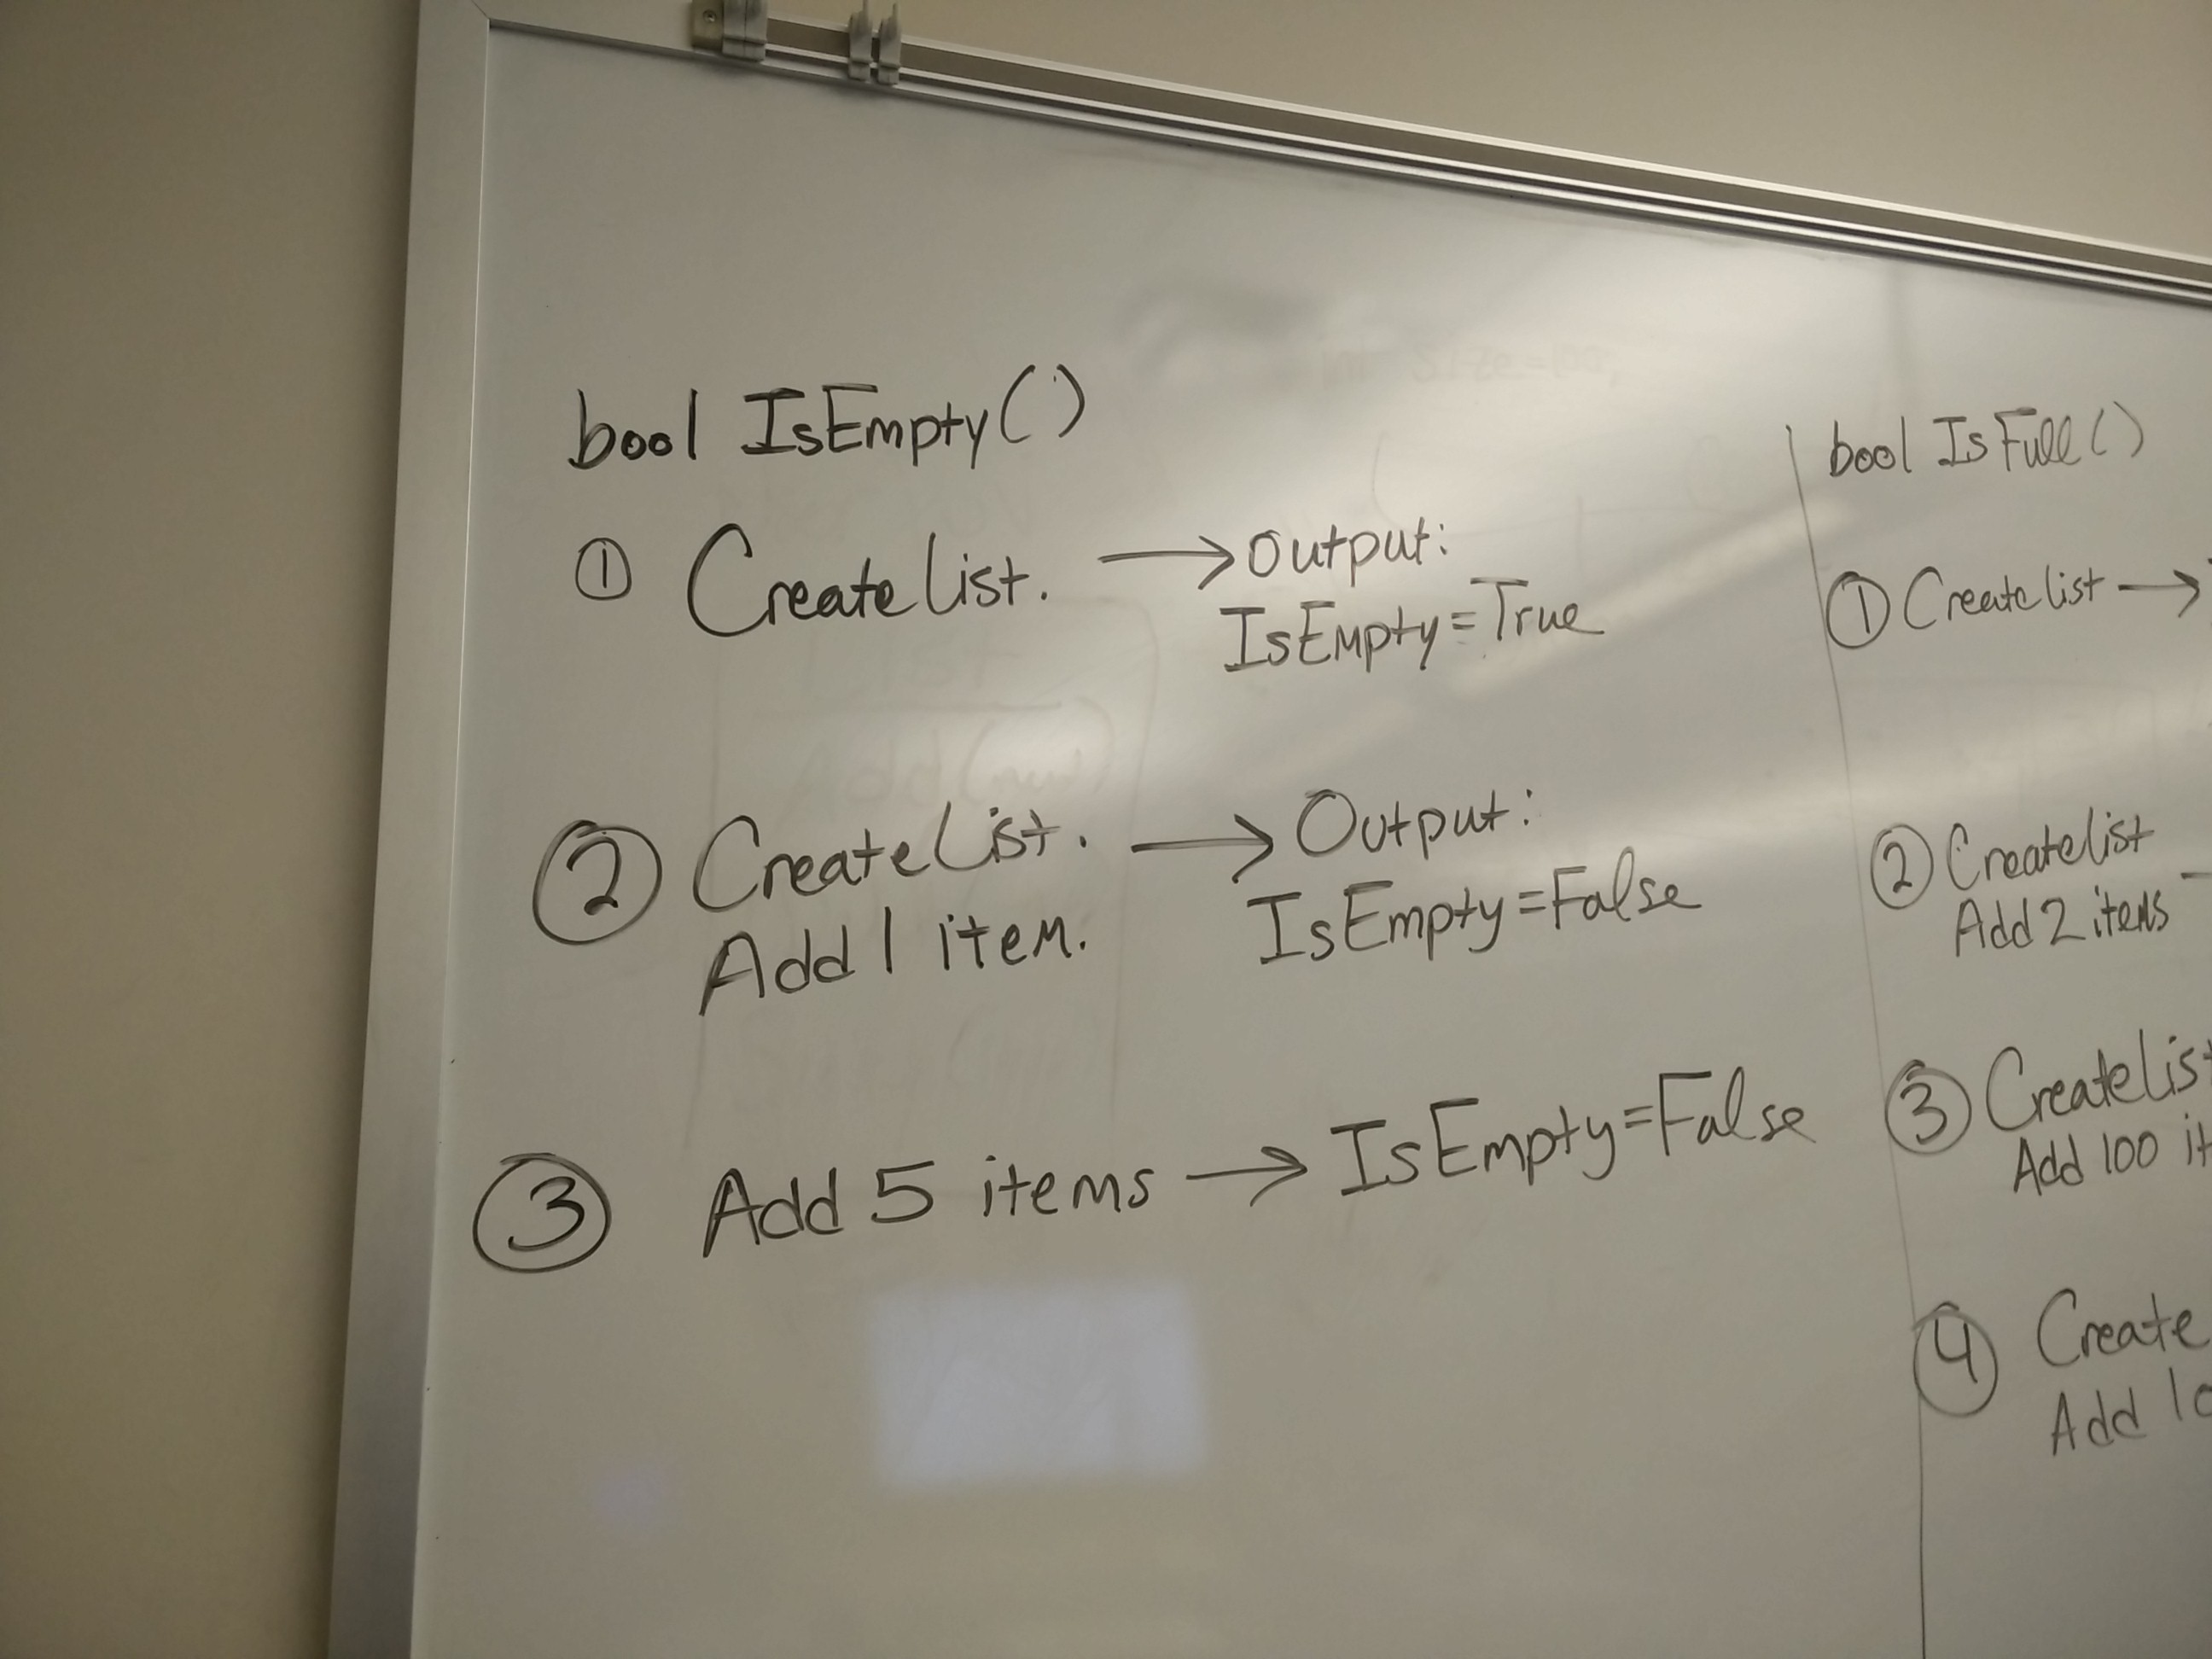 bool IsEmpty()
① Create list. → Output:
IsEmpty=True
② Create List. → Output:
Add 1 item. IsEmpty=False
③ Add 5 items → IsEmpty=False
bool IsFull()
① Create list →
② Create list
Add 2 items
③ Create lis
Add 100 it
④ Create
Add